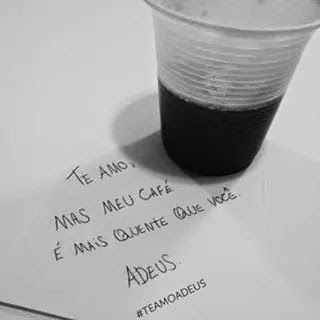 TE AMO,
MAS MEU CAFÉ
É MAIS QUENTE QUE VOCÊ.
ADEUS.
#TEAMOADEUS